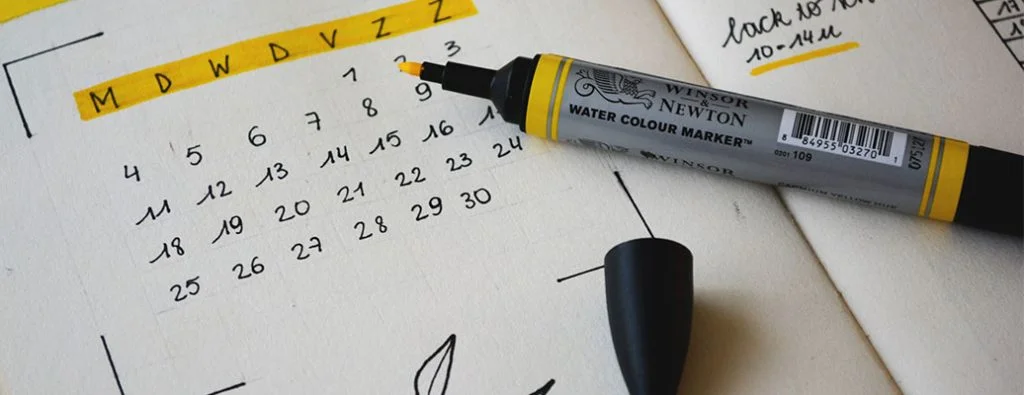 M D W D V Z Z
1 2 3
4 5 6 7 8 9
11 12 13 14 15 16
18 19 20 21 22 23 24
25 26 27 28 29 30
back to
10-14u
17
WINSOR
&
NEWTON
WATER COLOUR MARKER™
8 84955 03270 1
0201 109
WINSOR
CADMIUM YELLOW HUE